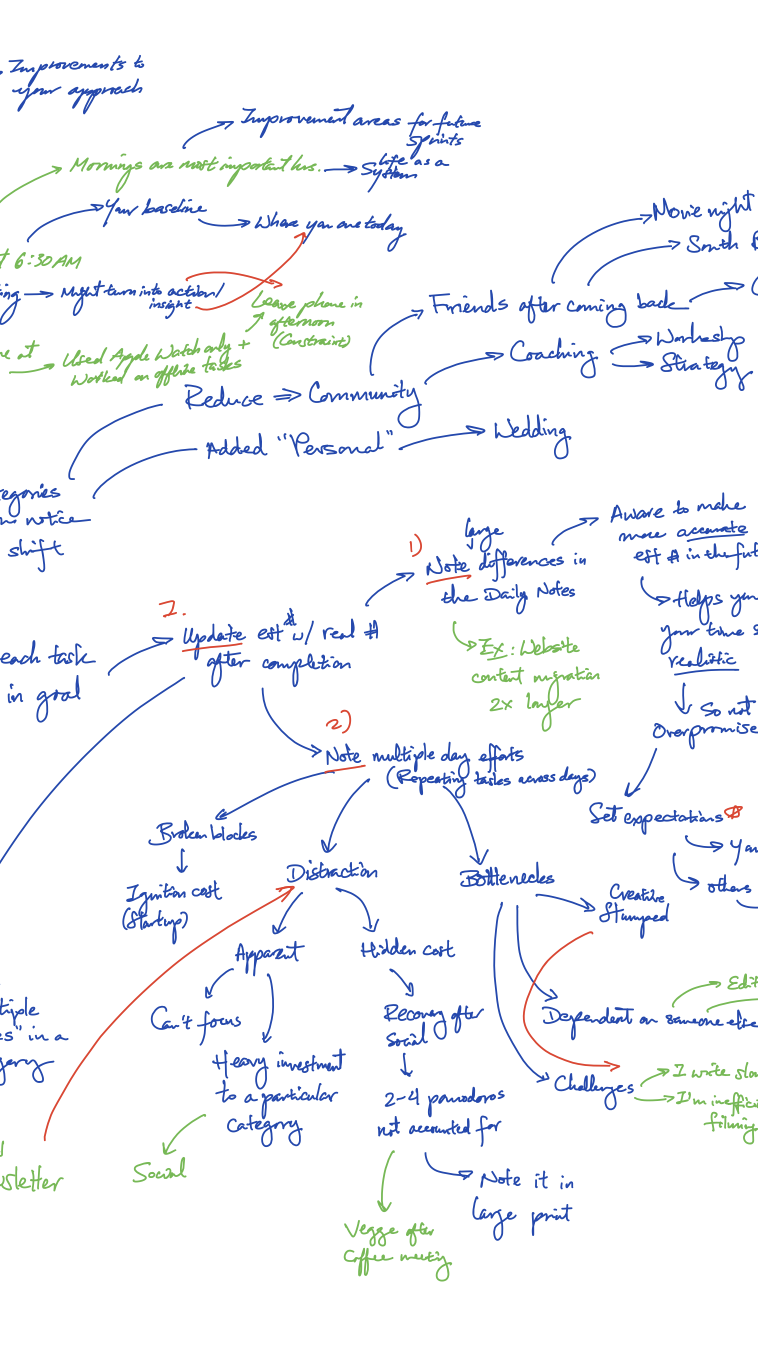 Improvements to
your approach
Improvement areas for future
sprints
Mornings are most important hrs.
Life as a
System
Your baseline
Where you are today
6:30 AM
Might turn into action/
insight
Leave phone in
afternoon
(Constraint)
at
Used Apple Watch only +
Worked on offline tasks
Movie night
South
Friends after coming back
Coaching
Workshop
Strategy
Reduce ⇒ Community
Added "Personal"
Wedding
notice
shift
1)
large
Note differences in
the Daily Notes
Aware to make
more accurate
est # in the fut
Helps you
your time s
realistic
So not
Overpromise
Set expectations
You
others
Ex: Website
content migration
2x longer
1.
Update est # w/ real #
after completion
each task
in goal
2)
Note multiple day efforts
(Repeating tasks across days)
Broken blocks
Ignition cost
(Startup)
Distraction
Apparent
Can't focus
Heavy investment
to a particular
category
Social
Hidden cost
Recovery after
Social
2-4 pomodoros
not accounted for
Note it in
large print
Vegge after
Coffee meeting
Bottlenecks
Creative
Stumped
Dependent on someone else
Edit
Challenges
I write slow
I'm ineffici
filming
tiple
es" in a
gory
sletter